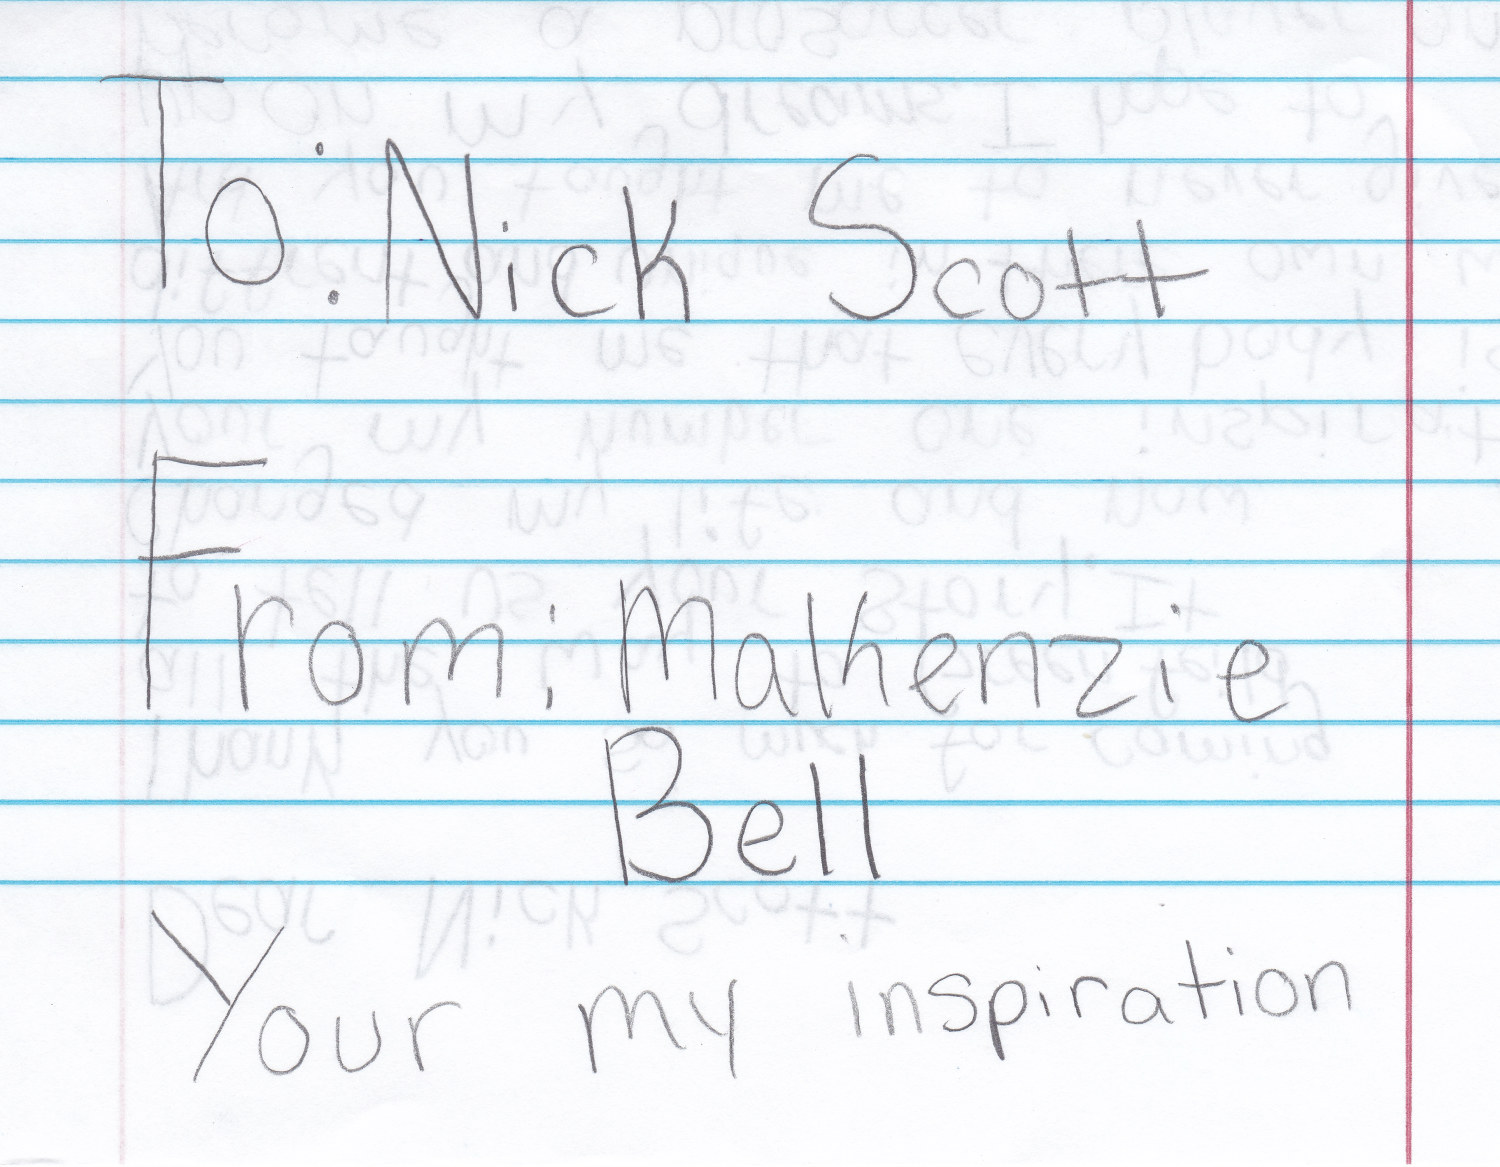 To: Nick Scott
From: Makenzie
Bell
Your my inspiration